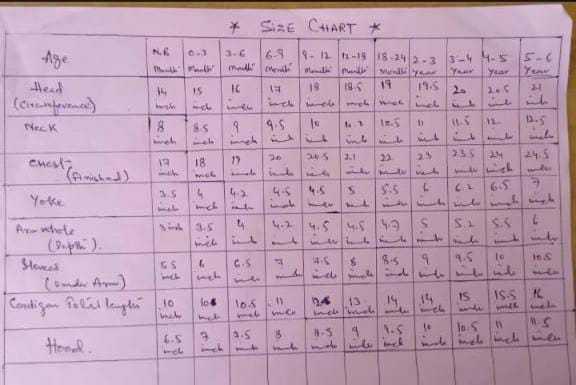 * SIZE CHART *
Age N.B Month 0-3 Month 3-6 Month 6-9 Month 9-12 Month 12-18 Month 18-24 Month 2-3 Year 3-4 Year 4-5 Year 5-6 Year
Head (Circumference) 14 inch 15 inch 16 inch 17 inch 18 inch 18.5 inch 19 inch 19.5 inch 20 inch 20.5 inch 21 inch
Neck 8 inch 8.5 inch 9 inch 9.5 inch 10 inch inch 10.5 inch 11 inch 11.5 inch 12 inch 12.5 inch
Chest (finished) 17 inch 18 inch 19 inch 20 inch 20.5 inch 21 inch 22 inch 23 inch 23.5 inch 24 inch 24.5 inch
Yoke 3.5 inch 4 inch 4.2 inch 4.5 inch 4.5 inch 5 inch 5.5 inch 6 inch 6.2 inch 6.5 inch 7 inch
Arm whole (Depth). 3 inch 3.5 inch 4 inch 4.2 inch 4.5 inch 4.5 inch 4.7 inch 5 inch 5.2 inch 5.5 inch 6 inch
Sleeves (Under Arm) 5.5 inch 6 inch 6.5 inch 7 inch 7.5 inch 8 inch 8.5 inch 9 inch 9.5 inch 10 inch 10.5 inch
Cardigan length 10 inch inch 10.5 inch 11 inch inch 13 inch 14 inch 14 inch 15 inch 15.5 inch 16 inch
Hood. 6.5 inch 7 inch 7.5 inch 8 inch 8.5 inch 9 inch 9.5 inch 10 inch 10.5 inch 11 inch 11.5 inch